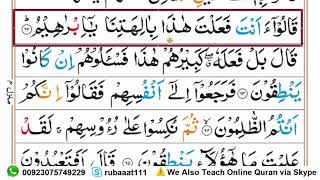 قَالُوْٓا ءَاَنْتَ فَعَلْتَ هٰذَا بِاٰلِهَتِنَا يٰٓاِبْرٰهِيْمُ ؕ ﴿۶۲﴾
قَالَ بَلْ فَعَلَهٗ ۖ كَبِيْرُهُمْ هٰذَا فَسْـَٔلُوْهُمْ اِنْ كَانُوْا
يَنْطِقُوْنَ ﴿۶۳﴾ فَرَجَعُوْٓا اِلٰٓى اَنْفُسِهِمْ فَقَالُوْٓا اِنَّكُمْ
اَنْتُمُ الظّٰلِمُوْنَ ﴿۶۴﴾ ثُمَّ نُكِسُوْا عَلٰى رُءُوْسِهِمْ ۚ لَقَدْ
عَلِمْتَ مَا هٰٓؤُلَآءِ يَنْطِقُوْنَ ﴿۶۵﴾ قَالَ اَفَتَعْبُدُوْنَ
00923075749229 rubaaat111 ⚠ We Also Teach Online Quran via Skype